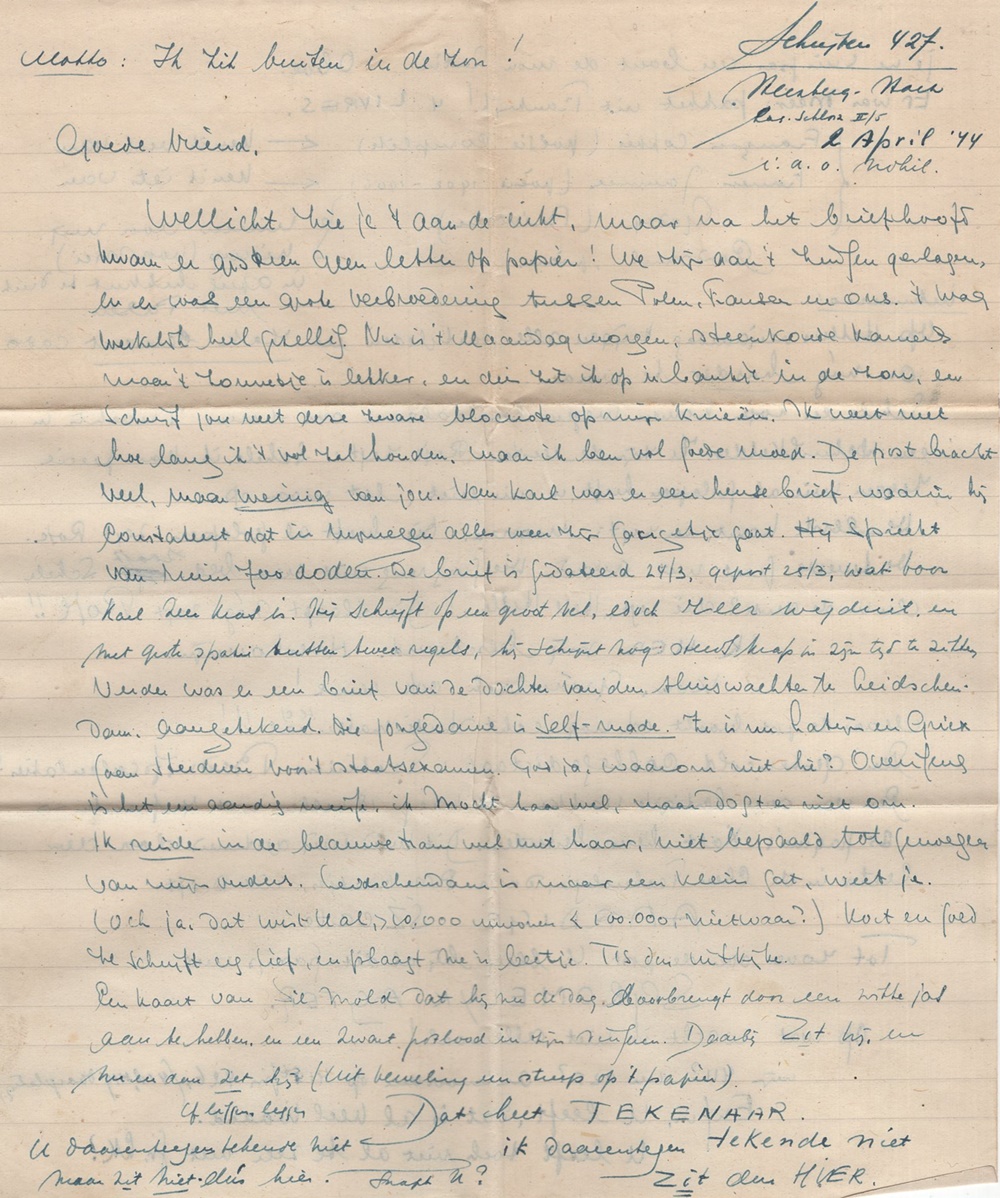 Motto: Ik zit buiten in de zon!
Schuyten 427.
2 April '44
i. a. o. nobil.
Goede Vriend.
Wellicht zie je 't aan de inkt, maar na het briefhoofd
kwam er geen letter op papier! We zijn aan 't geslagen,
en er was een grote verbroedering tussen Polen, Fransen en ons. 't Was
werkelijk heel gezellig. Nu is 't Maandagmorgen, steenkoude kamers
maar 't zonnetje is lekker, en dus zit ik op 'n bankje in de zon, en
schrijf jou met deze zware blocnote op mijn knieën. Ik weet niet
hoe lang ik 't vol zal houden, maar ik ben vol goede moed. De post bracht
veel, maar weinig van jou. Van Karel was er een heuse brief, waarin hij
Constateert dat in Nijmegen alles weer zijn gangetje gaat. Hij spreekt
van ruim 700 doden. De brief is gedateerd 24/3, gepost 25/3, wat voor
Karel zeer kras is. Hij schrijft op een groot vel, edoch zeer wijduit, en
met grote spatie tussen twee regels, hij schijnt nog steeds krap in zijn tijd te zitten
Verder was er een brief van de dochter van den sluiswachter te Leidschen-
dam. Aangetekend. Die jongedame is self-made. Ze is nu Latijn en Griex
gaan studeren voor 't staatsexamen. Got ja, waarom niet hè? Overigens
is het een aardig meisje, ik mocht haar wel, maar dogt er niet om.
Ik reisde in de blauwe tram wel met haar, niet bepaald tot genoegen
van mijn ouders. Leidschendam is maar een klein gat, weet je.
(Och ja, dat wist U al, > 10.000 inwoners < 100.000, nietwaar?) Kort en goed
ze schrijft erg lief, en plaagt me 'n beetje. TIS dus uitkijke.
Een kaart van meld dat hij nu de dag doorbrengt door een witte jas
aan te hebben, en een zwart potlood in zijn vingers. Daarbij Zit hij, en
nu en dan Zet hij (uit verveling een streep op 't papier).
Dat heet TEKENAAR.
U daarentegen tekende niet
maar zit niet dus hier. Snapt U?
ik daarentegen tekende niet
Zit dus HIER.